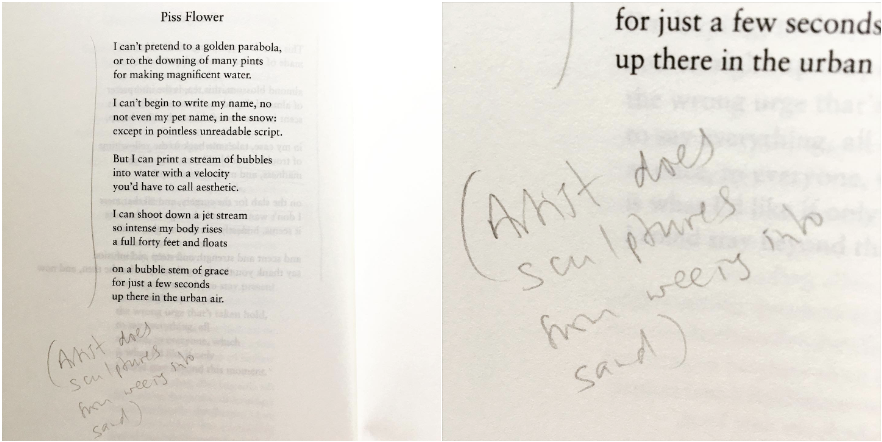 Piss Flower
I can't pretend to a golden parabola,
or to the downing of many pints
for making magnificent water.
I can't begin to write my name, no
not even my pet name, in the snow:
except in pointless unreadable script.
But I can print a stream of bubbles
into water with a velocity
you'd have to call aesthetic.
I can shoot down a jet stream
so intense my body rises
a full forty feet and floats
on a bubble stem of grace
for just a few seconds
up there in the urban air.
(Artist does
sculptures
from wees into
sand)
for just a few seconds
up there in the urban
(Artist does
sculptures
from wees into
sand)